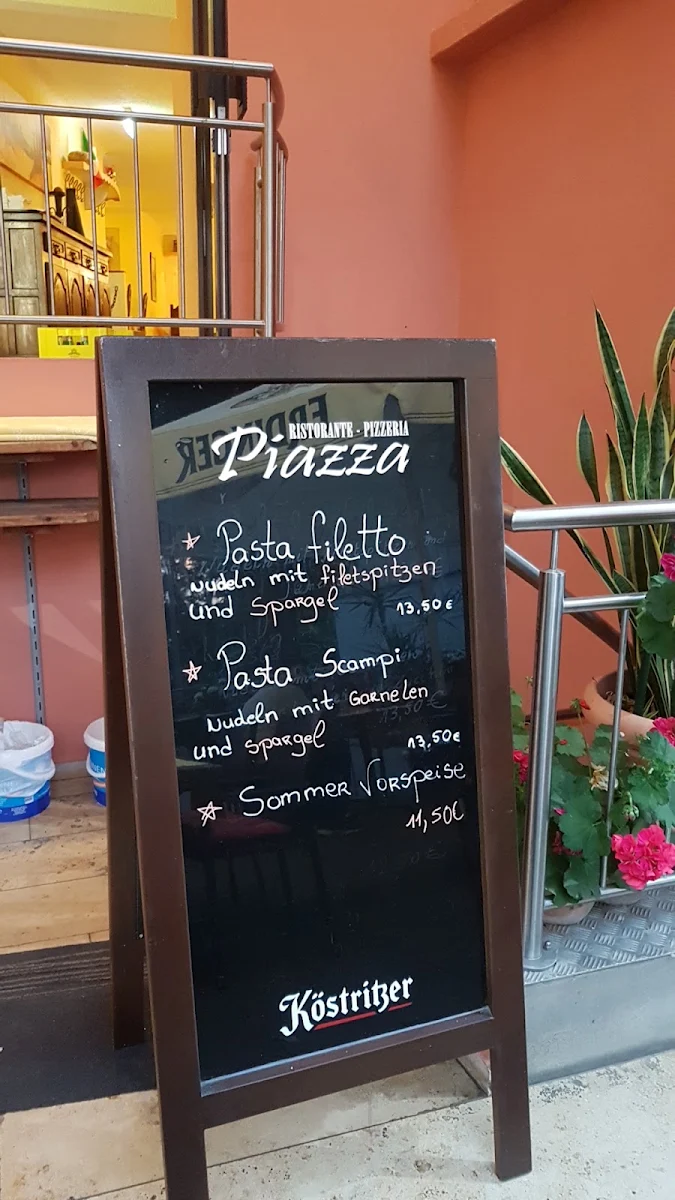 RISTORANTE - PIZZERIA
Piazza
Pasta filetto
Nudeln mit filetspitzen
und Spargel 13,50 €
Pasta Scampi
Nudeln mit Garnelen
und spargel 13,50€
Sommer Vorspeise
11,50€
Köstritzer